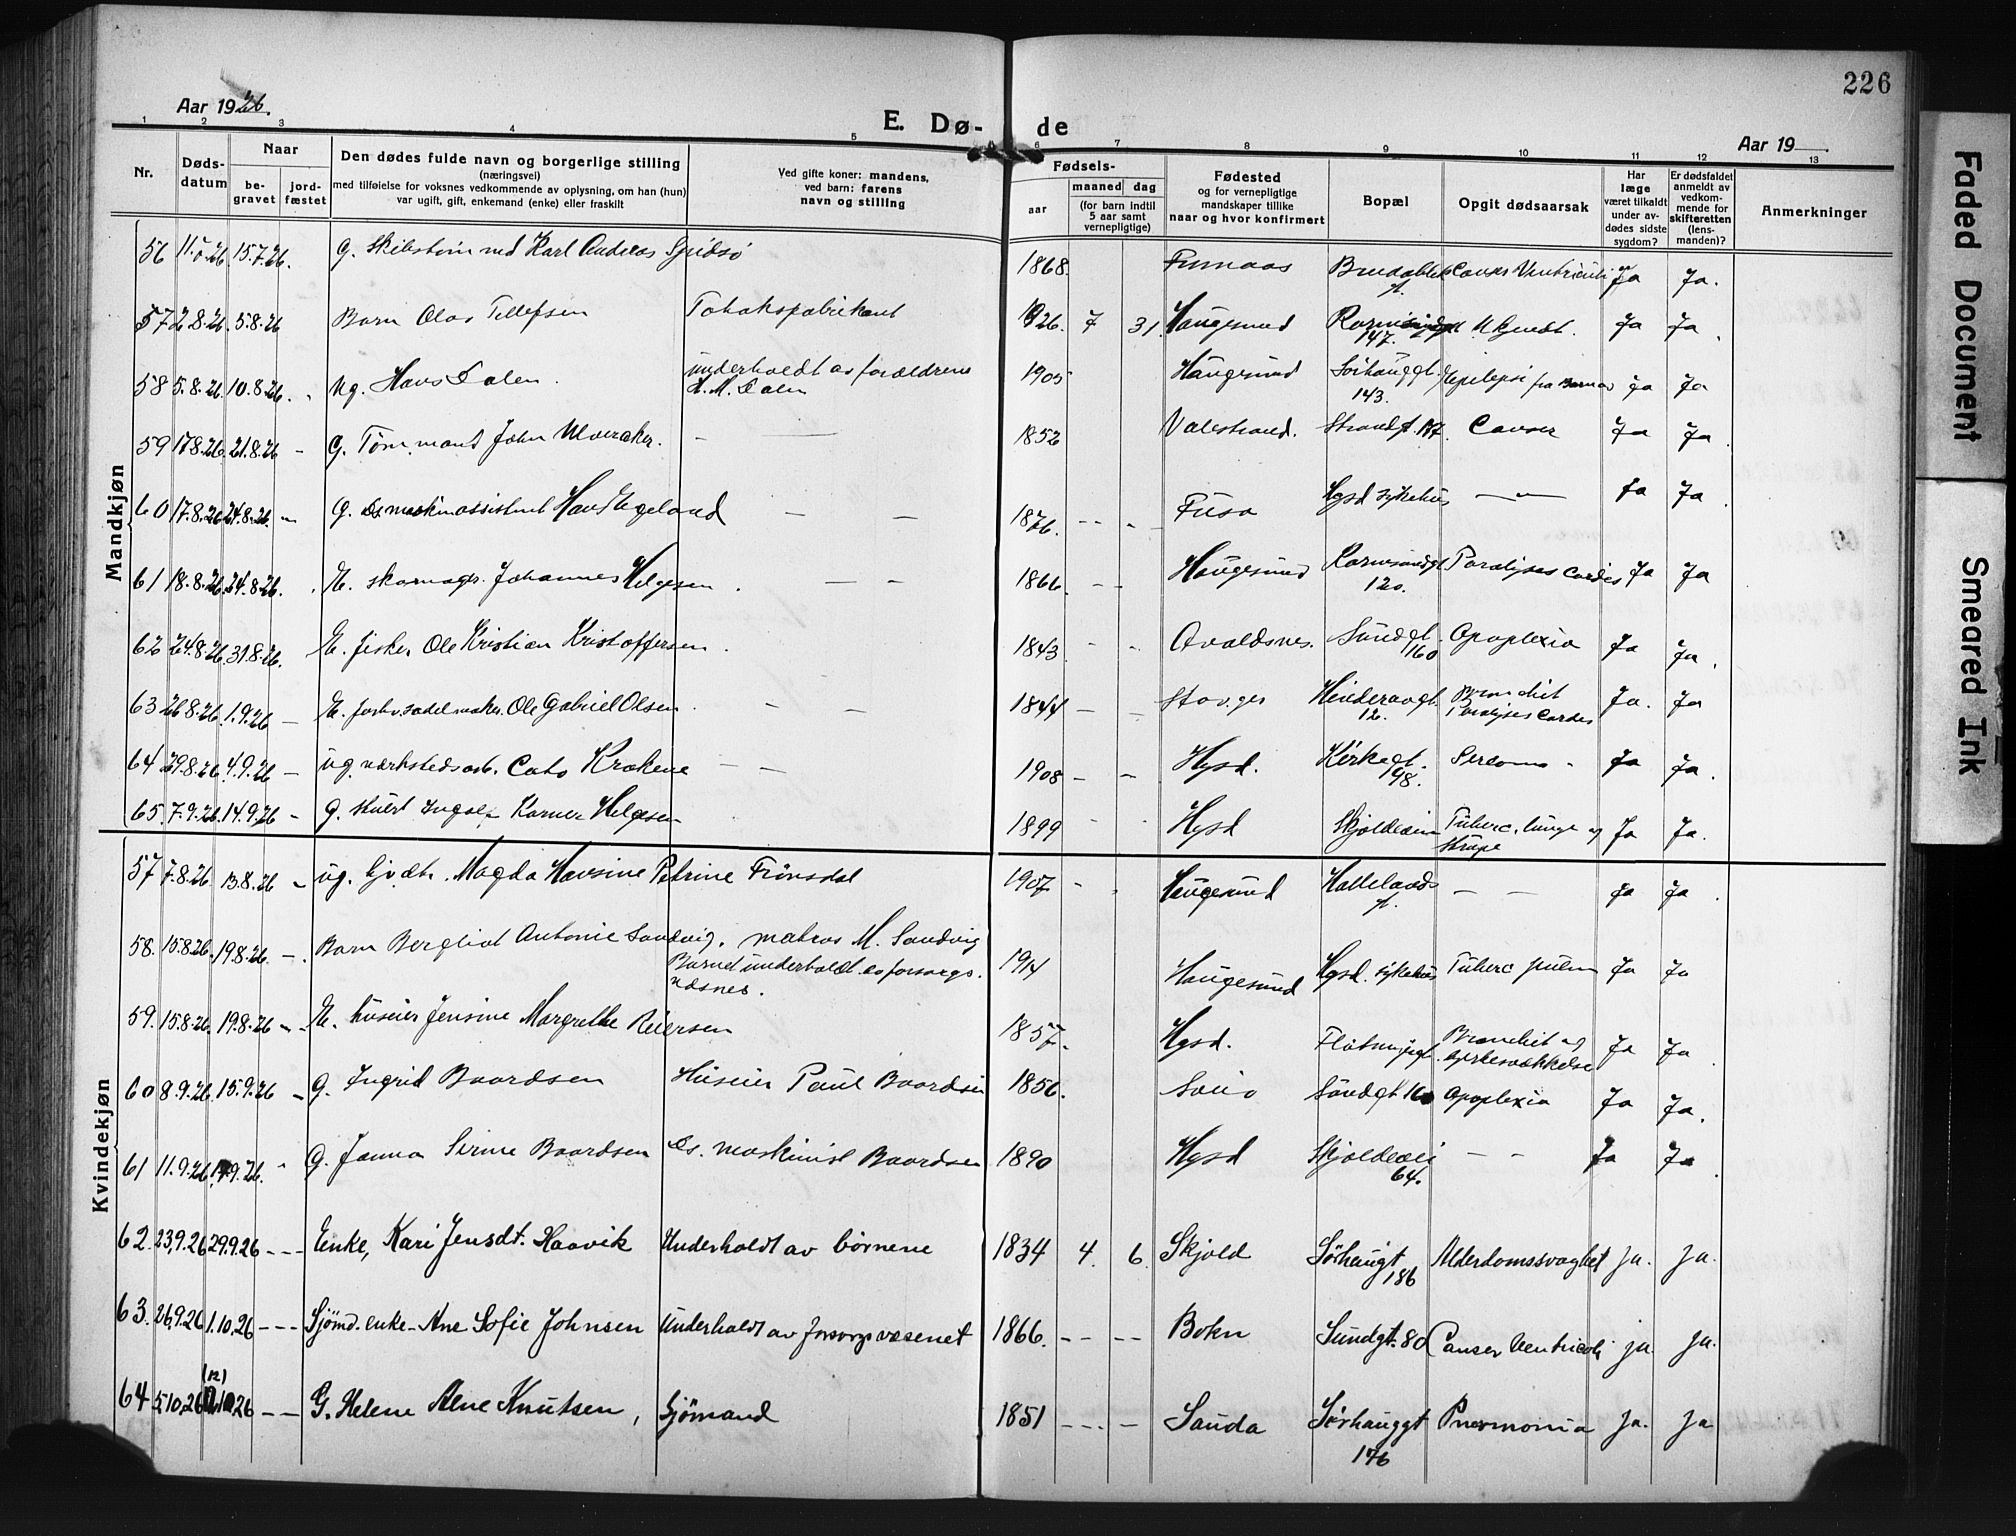 226
Aar 1926.
E. Dø- de
Aar 19
1 2 3 4 5 6 7 8 9 10 11 12 13
Nr.
Døds-
datum
Naar
be-
gravet
jord-
fæstet
Den dødes fulde navn og borgerlige stilling
(næringsvei)
med tilføielse for voksnes vedkommende av oplysning, om han (hun)
var ugift, gift, enkemand (enke) eller fraskilt
Ved gifte koner: mandens,
ved barn: farens
navn og stilling
Fødsels-
aar
maaned dag
(for barn indtil
5 aar samt
vernepligtige)
Fødested
og for vernepligtige
mandskaper tillike
naar og hvor konfirmert
Bopæl
Opgit dødsaarsak
Har
læge
været tilkaldt
under av-
dødes sidste
sygdom?
Er dødsfaldet
anmeldt av
vedkom-
mende for
skifteretten
(lens-
manden)?
Anmerkninger
Mandkjøn
56 15.7.26. g. Karl Andreas 1868. Ja Ja.
57 2.8.26. 5.8.26 Barn Olav Tellefsen Tobaksfabrikant 1926. 7 31. Haugesund 147. Ja Ja
58 5.8.26. 10.8.26. ug. Hans Dalen. underholdt av forældrene
H. M. Dalen 1905 Haugesund Sørhauggt. 143. Epilepsi fra Ja Ja
59 17.8.26. 21.8.26 - G. Tømmermand John - 1852 Valestrand. Strandgt. Canser Ja Ja
60 17.8.26 24.8.26. - g. Ds. maskinassistent Hans Egeland - - 1876. Fusa Hgsd sykehus - Ja Ja
61 18.8.26. 24.8.26. E. skomager. Johannes Helgesen - - 1866. Haugesund Karmsundgt 120. Paralyses Cordis Ja Ja
62 24.8.26. 31.8.26. E. fisker Ole Kristian Kristoffersen 1843 Avaldsnes. Sundgt. 160 Apoplexia Ja Ja.
63 26.8.26. 1.9.26 - E. forhv. sadelmaker. Ole Gabriel Olsen - - 1844 - - Stavger 12. Bronchit
Paralyses Cordis Ja. Ja
64 29.8.26 4.9.26 - ug. værkstedsarb. Cato Krakene - - 1908 - - Hgsd. Kirkegt. 198. Ja Ja.
65. 7.9.26. 14.9.26 - g. Karner Helgesen 1899 Hgsd Skjoldevei Tuberc. lunge og
strupe Ja Ja.
Kvindekjøn
57 7.8.26. 13.8.26 - ug. tj. Magda Hansine Petrine 1907 - Haugesund - - Ja Ja
58. 15.8.26. 19.8.26 -. Barn Bergliot Antonie Sandvig. matros M. Sandvig
Barnet underholdt av forsorgs-
væsnet. 1914 Haugesund Hgsd. sykehus Tuberc pulm Ja Ja
59. 15.8.26. 19.8.26 - E. huseier Jensine Margrethe Reiersen 1857. Hgsd. Bronchit og Ja Ja
60 8.9.26. 15.9.26 - g. Ingrid Baardsen Huseier Paul Baardsen 1856. Sundgt 160 Apoplexia Ja Ja.
61 11.9.26 17.9.26. g. Janna Sirine Baardsen Ds. maskinist Baardsen 1890 Hgsd Skjoldevei 64. - - Ja Ja
62. 23.9.26 29.9.26 - - - Enke, Kari Jensdt. Haavik Underholdt av børnene 1834 4. 6. Skjold Sørhaugt 186 Alderdomssvaghet Ja. Ja.
63. 26.9.26 1.10.26 - - - Sjømd. enke - Ane Sofie Johnsen Underholdt av forsorgsvæsenet 1866. - - - - Bokn Sundgt. 80 Canser Ventricoli ja. Ja.
64 5.10.26 (12) 10.26 - - G. Helene Alne Knutsen, Sjømand 1851 - - - - Sauda Sørhauggt 176 Pnevmonia Ja. Ja
Faded Document
Smeared Ink